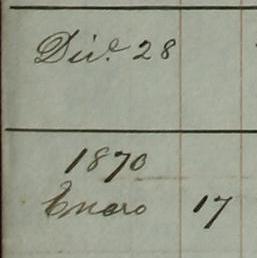 Dic.e 28
1870
Enero 17